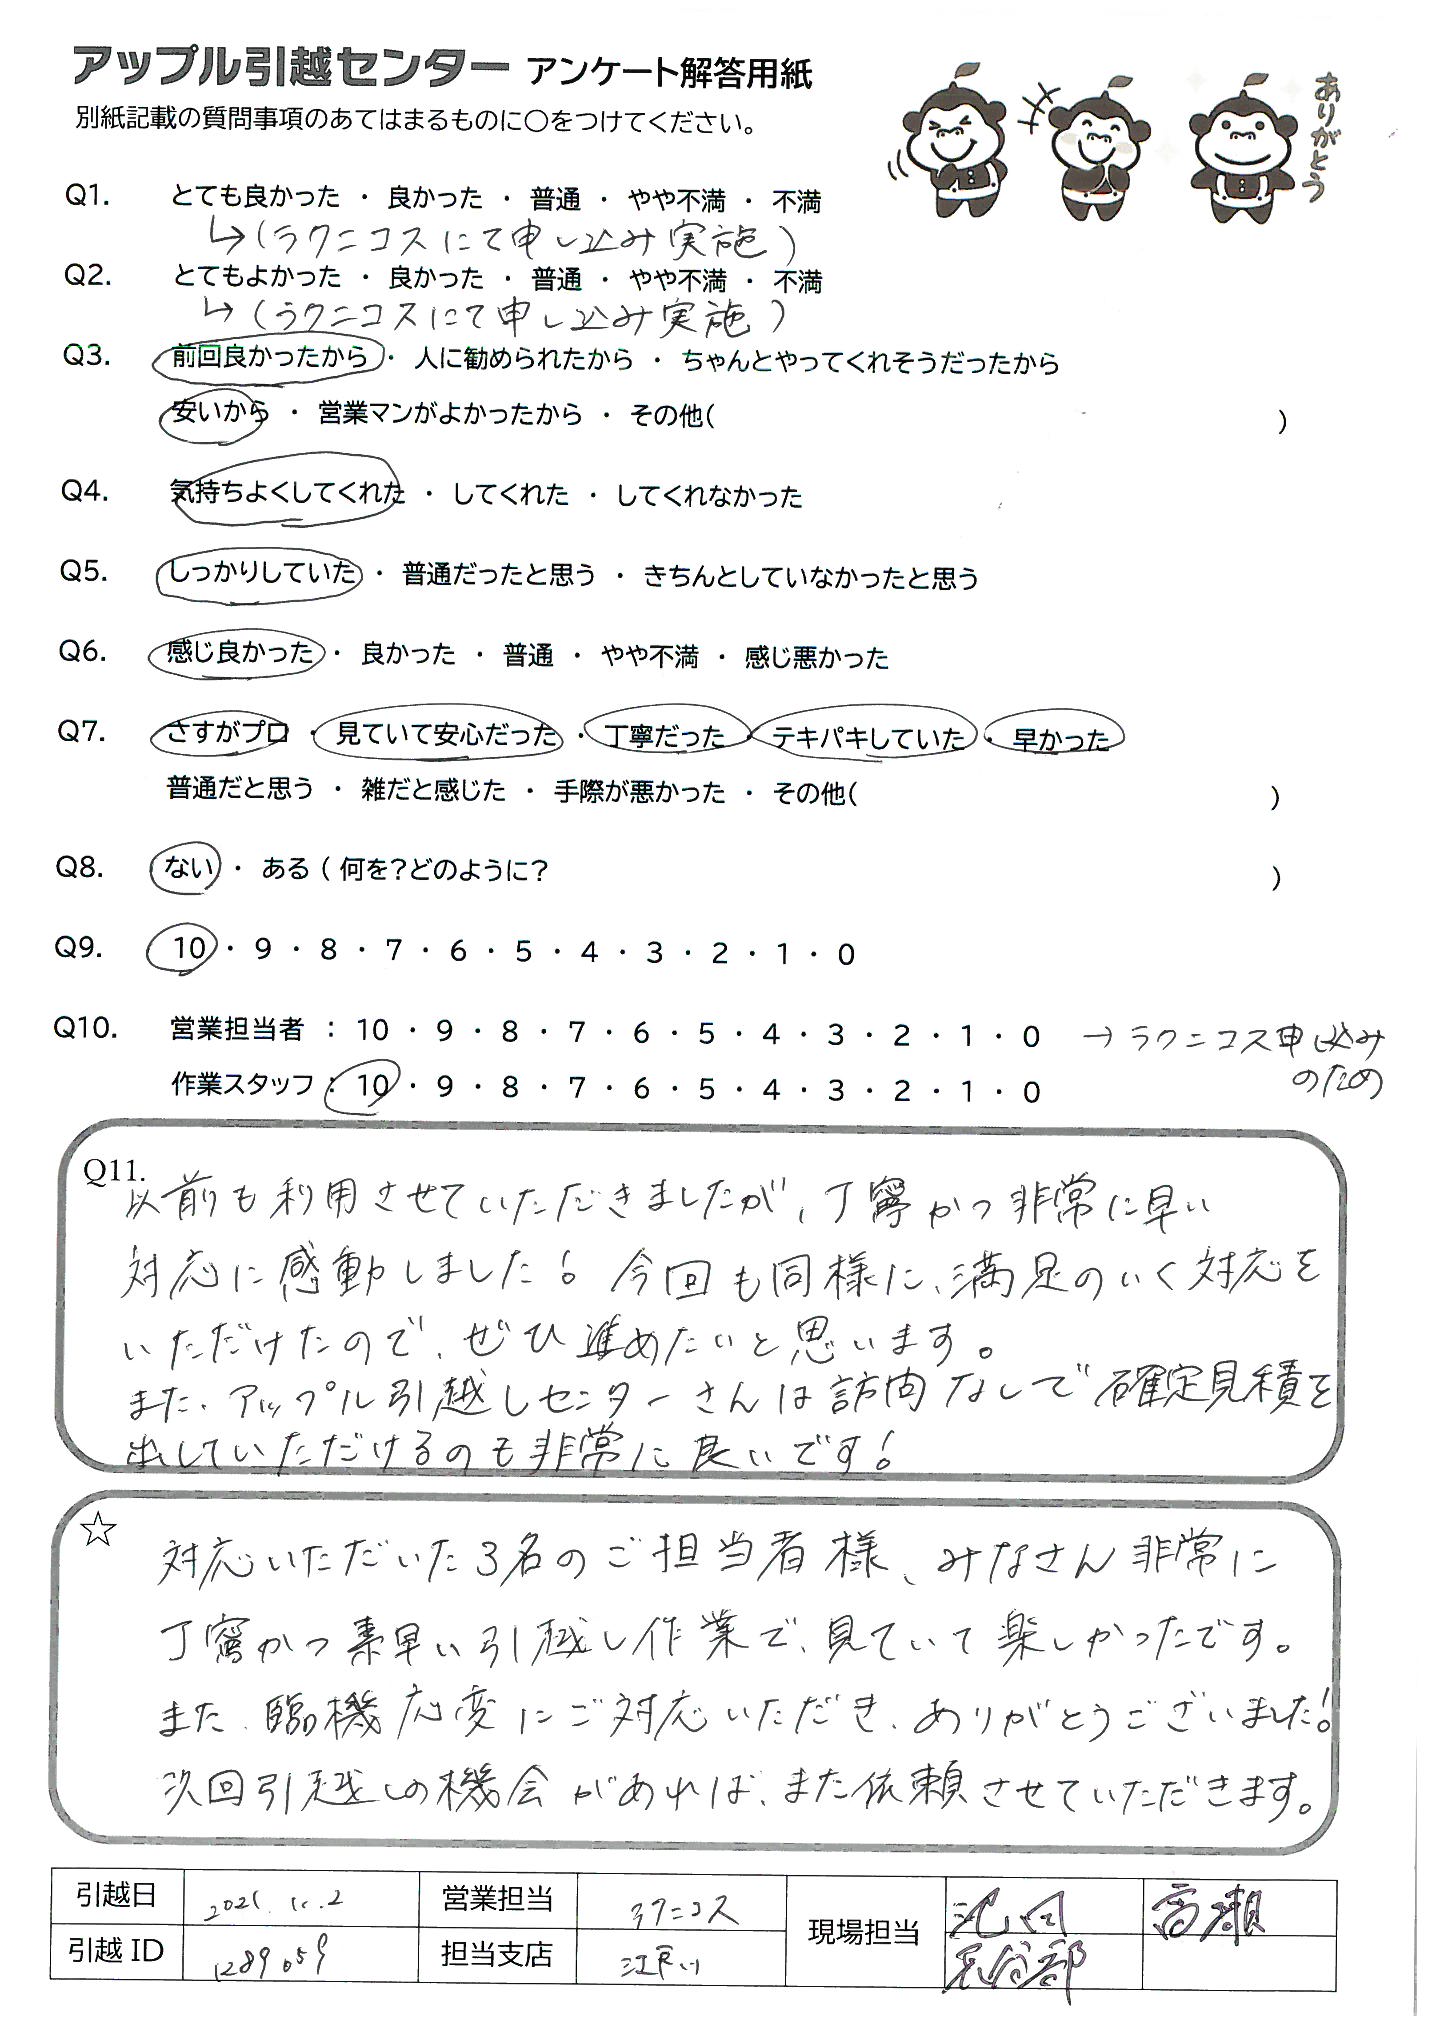 アップル引越センター アンケート解答用紙
別紙記載の質問事項のあてはまるものに○をつけてください。
ありがとう
Q1. とても良かった ・ 良かった ・ 普通 ・ やや不満 ・ 不満
↳(ラクニコスにて申し込み実施)
Q2. とてもよかった ・ 良かった ・ 普通 ・ やや不満 ・ 不満
↳(ラクニコスにて申し込み実施)
Q3. 前回良かったから ・ 人に勧められたから ・ ちゃんとやってくれそうだったから
安いから ・ 営業マンがよかったから ・ その他( )
Q4. 気持ちよくしてくれた ・ してくれた ・ してくれなかった
Q5. しっかりしていた ・ 普通だったと思う ・ きちんとしていなかったと思う
Q6. 感じ良かった ・ 良かった ・ 普通 ・ やや不満 ・ 感じ悪かった
Q7. さすがプロ ・ 見ていて安心だった ・ 丁寧だった ・ テキパキしていた ・ 早かった
普通だと思う ・ 雑だと感じた ・ 手際が悪かった ・ その他( )
Q8. ない ・ ある ( 何を?どのように? )
Q9. 10 ・ 9 ・ 8 ・ 7 ・ 6 ・ 5 ・ 4 ・ 3 ・ 2 ・ 1 ・ 0
Q10. 営業担当者 : 10 ・ 9 ・ 8 ・ 7 ・ 6 5 ・ 4 ・ 3 ・ 2 ・ 1 ・ 0 →ラクニコス申し込み
のため
作業スタッフ : 10 ・ 9 ・ 8 ・ 7 ・ 6 ・ 5 ・ 4 ・ 3 ・ 2 ・ 1 ・ 0
Q11.
以前も利用させていただきましたが、丁寧かつ非常に早い
対応に感動しました。今回も同様に、満足のいく対応を
いただけたので、ぜひ進めたいと思います。
また、アップル引越しセンターさんは訪問なしで確定見積を
出していただけるのも非常に良いです!
☆
対応いただいた3名のご担当者様、みなさん非常に
丁寧かつ素早い引越し作業で、見ていて楽しかったです。
また、臨機応変にご対応いただき、ありがとうございました!
次回引越しの機会があれば、また依頼させていただきます。
引越日 営業担当 ラクニコス 現場担当 高瀬
引越ID 1289059 担当支店 江戸川 長谷部